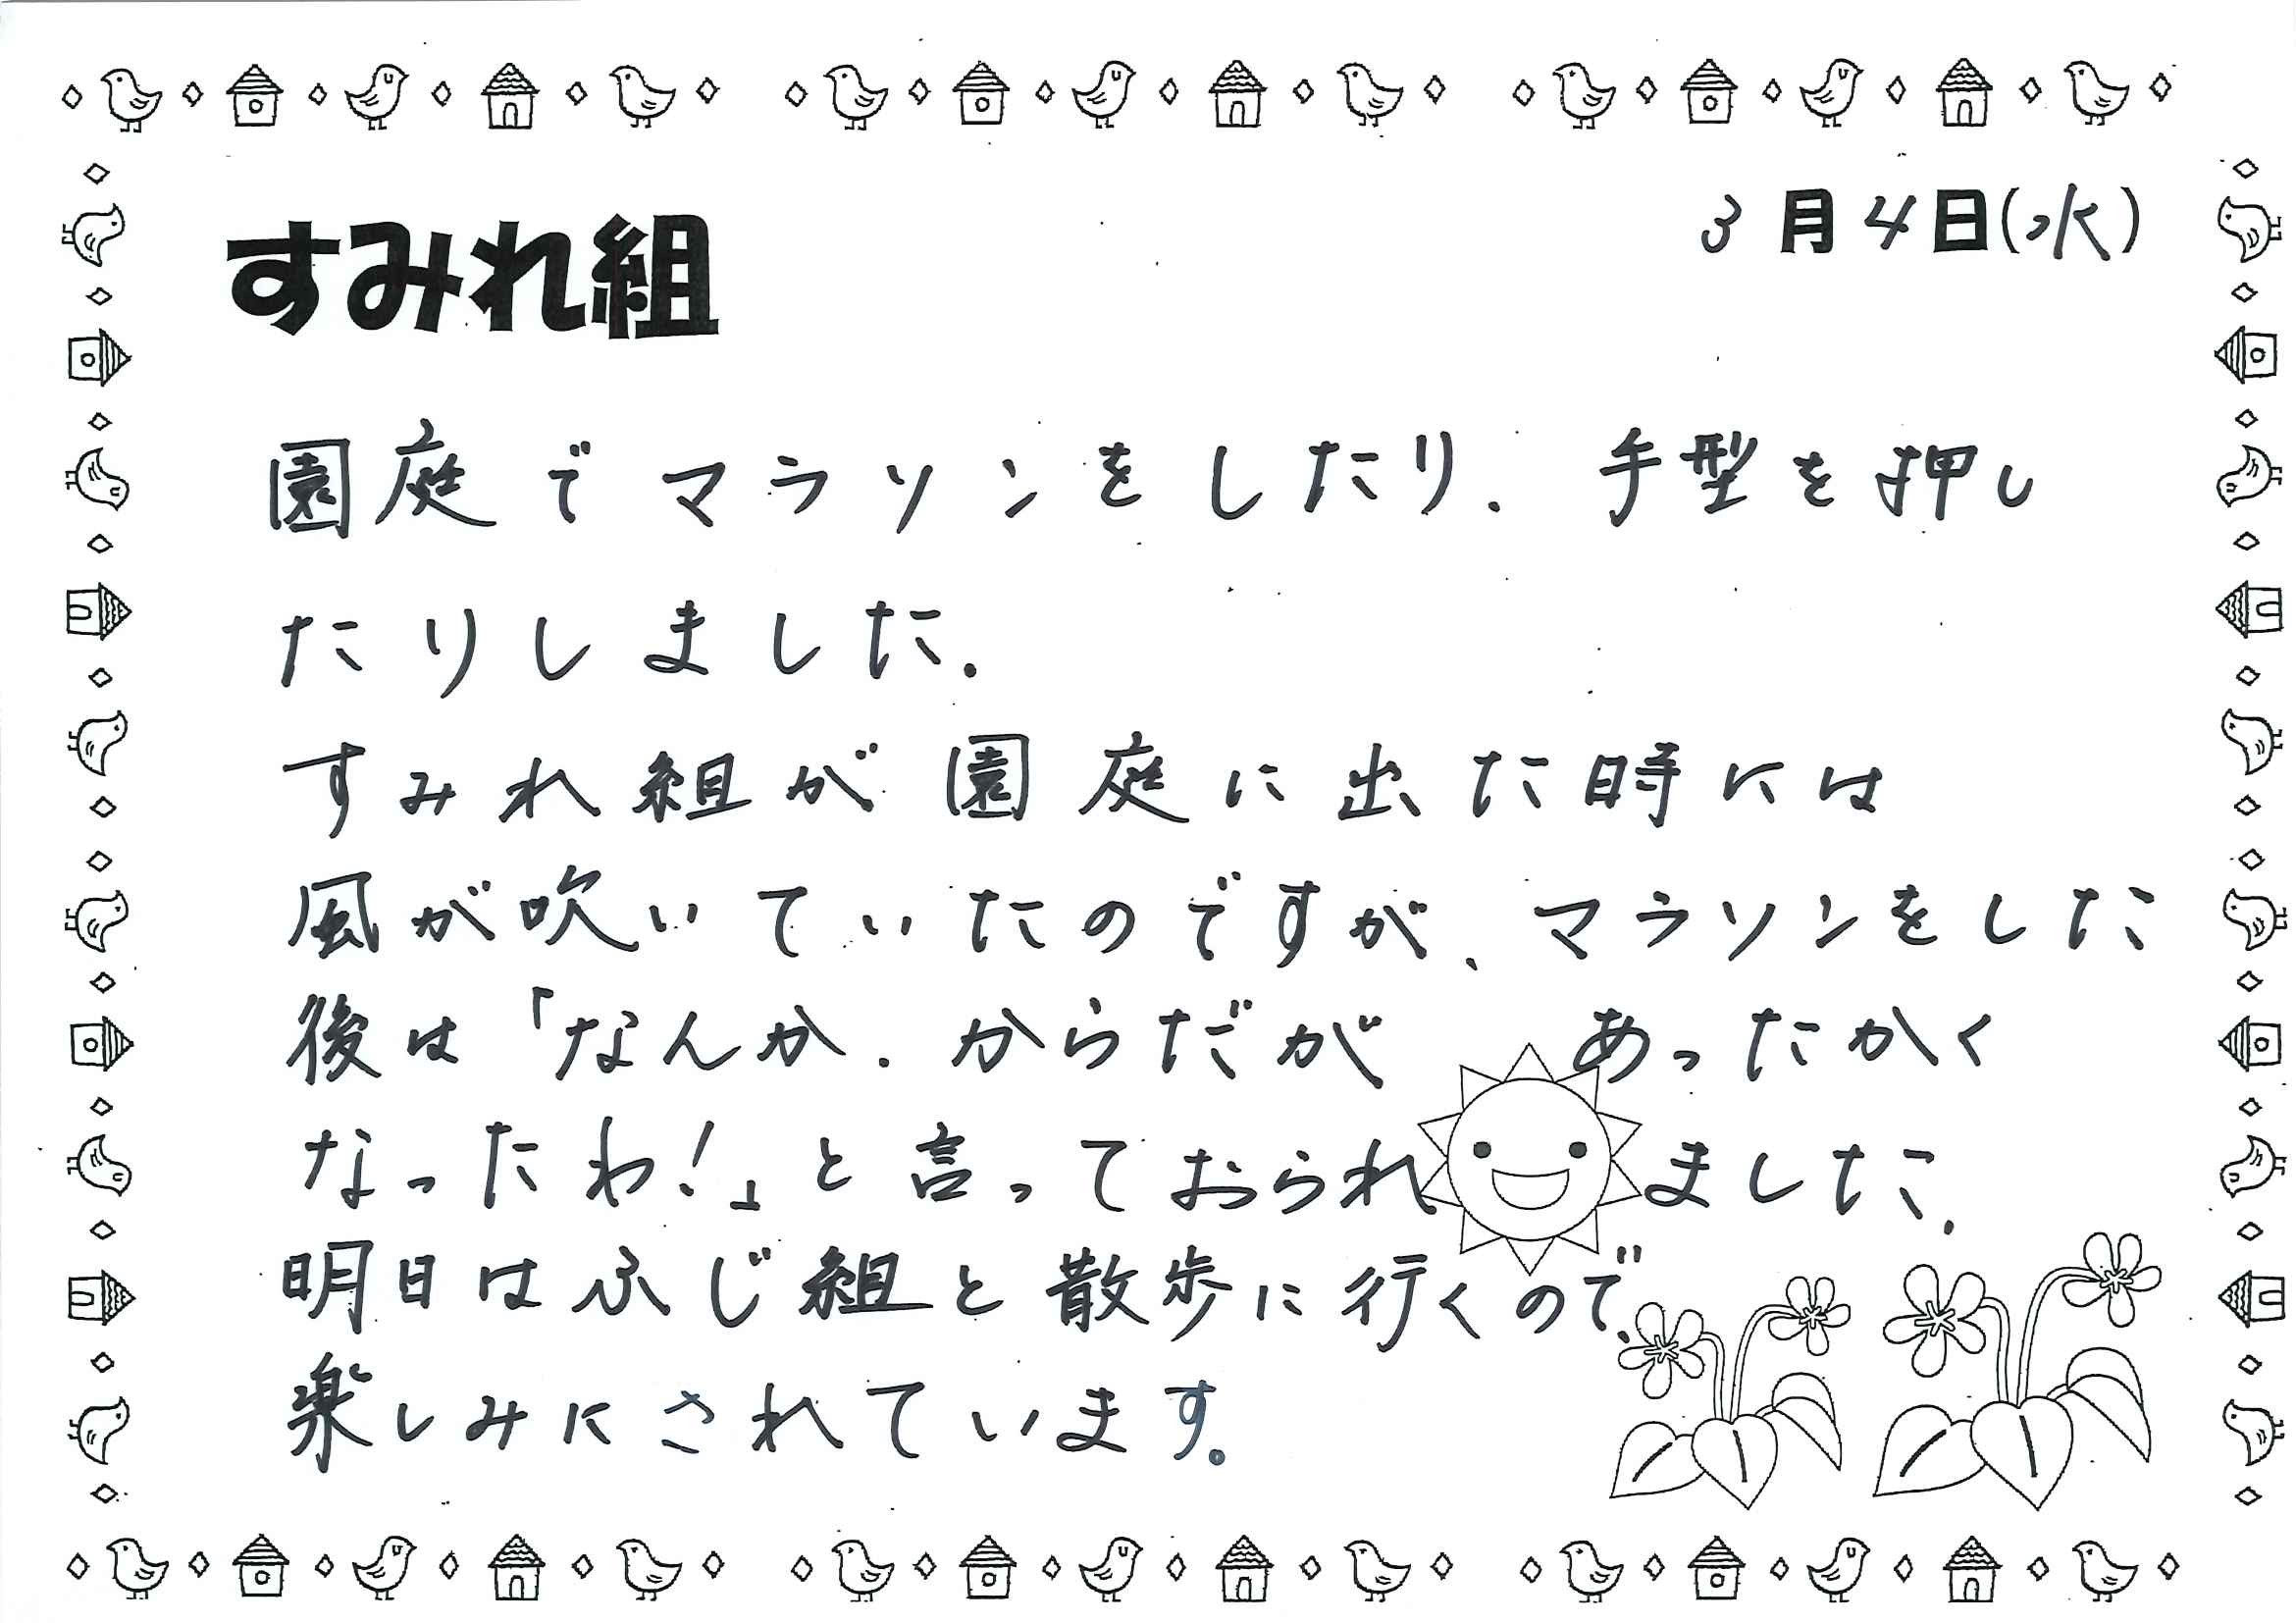 すみれ組
3月4日(水)
園庭でマラソンをしたり、手型を押し
たりしました。
すみれ組が園庭に出た時には
風が吹いていたのですが、マラソンをした
後は「なんか、からだが あったかく
なったわ!」と言っておられました。
明日はふじ組と散歩に行くので、
楽しみにされています。